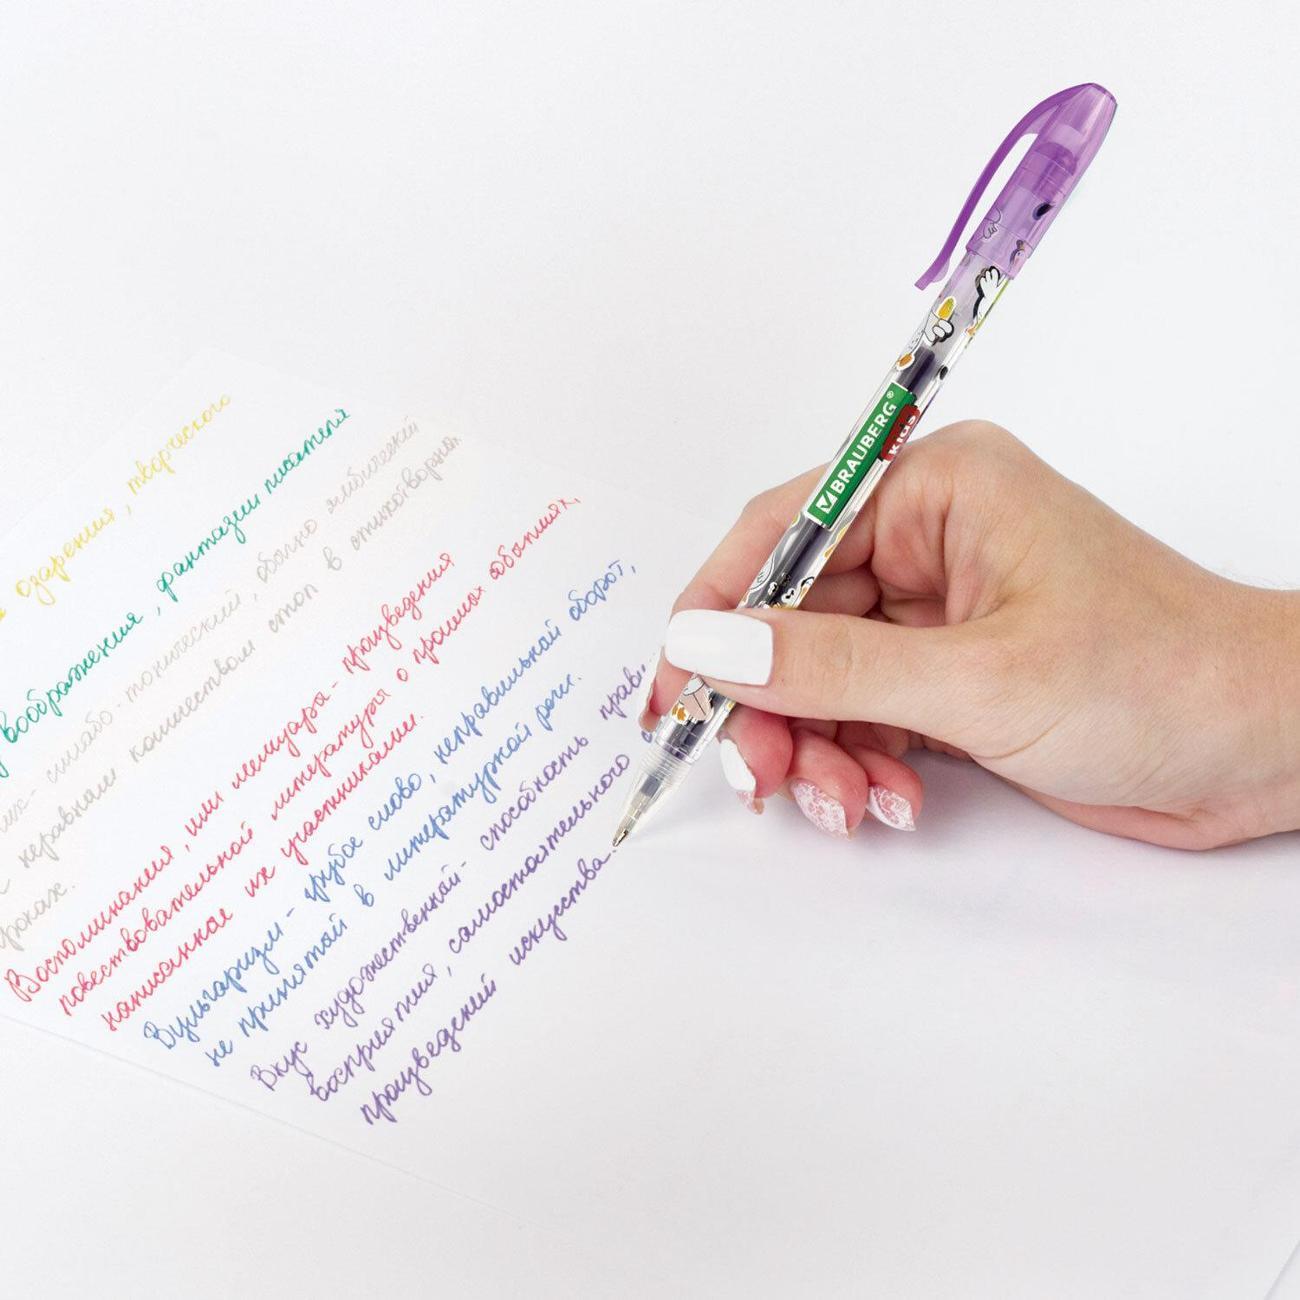 озарения, творческого
воображения, фантазии писателя
силлабо-тонический, обычно ямбический
с неравным количеством стоп в стихотворных
строках.
Воспоминания, или мемуары - произведения
повествовательной литературы о прошлых событиях,
написанное их участниками.
Вульгаризм - грубое слово, неправильный оборот,
не принятый в литературной речи.
Вкус художественный - способность прави
восприятия, самостоятельного
произведений искусства.
BRAUBERG®
Kids